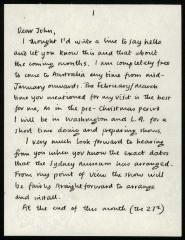 1
Dear John,
I thought I'd write a line to say hello
and let you know this and that about
the coming months. I am completely free
to come to Australia any time from mid-
January onwards. The february/march
time you mentioned for my visit is the best
for me, as in the pre-Christmas period
I will be in Washington and L.A. for a
short time doing and preparing shows.
I very much look forward to hearing
from you when you know the exact dates
that the Sydney museum has arranged.
From my point of view the show will
be fairly straightforward to arrange
and install.
At the end of this month (the 27th)